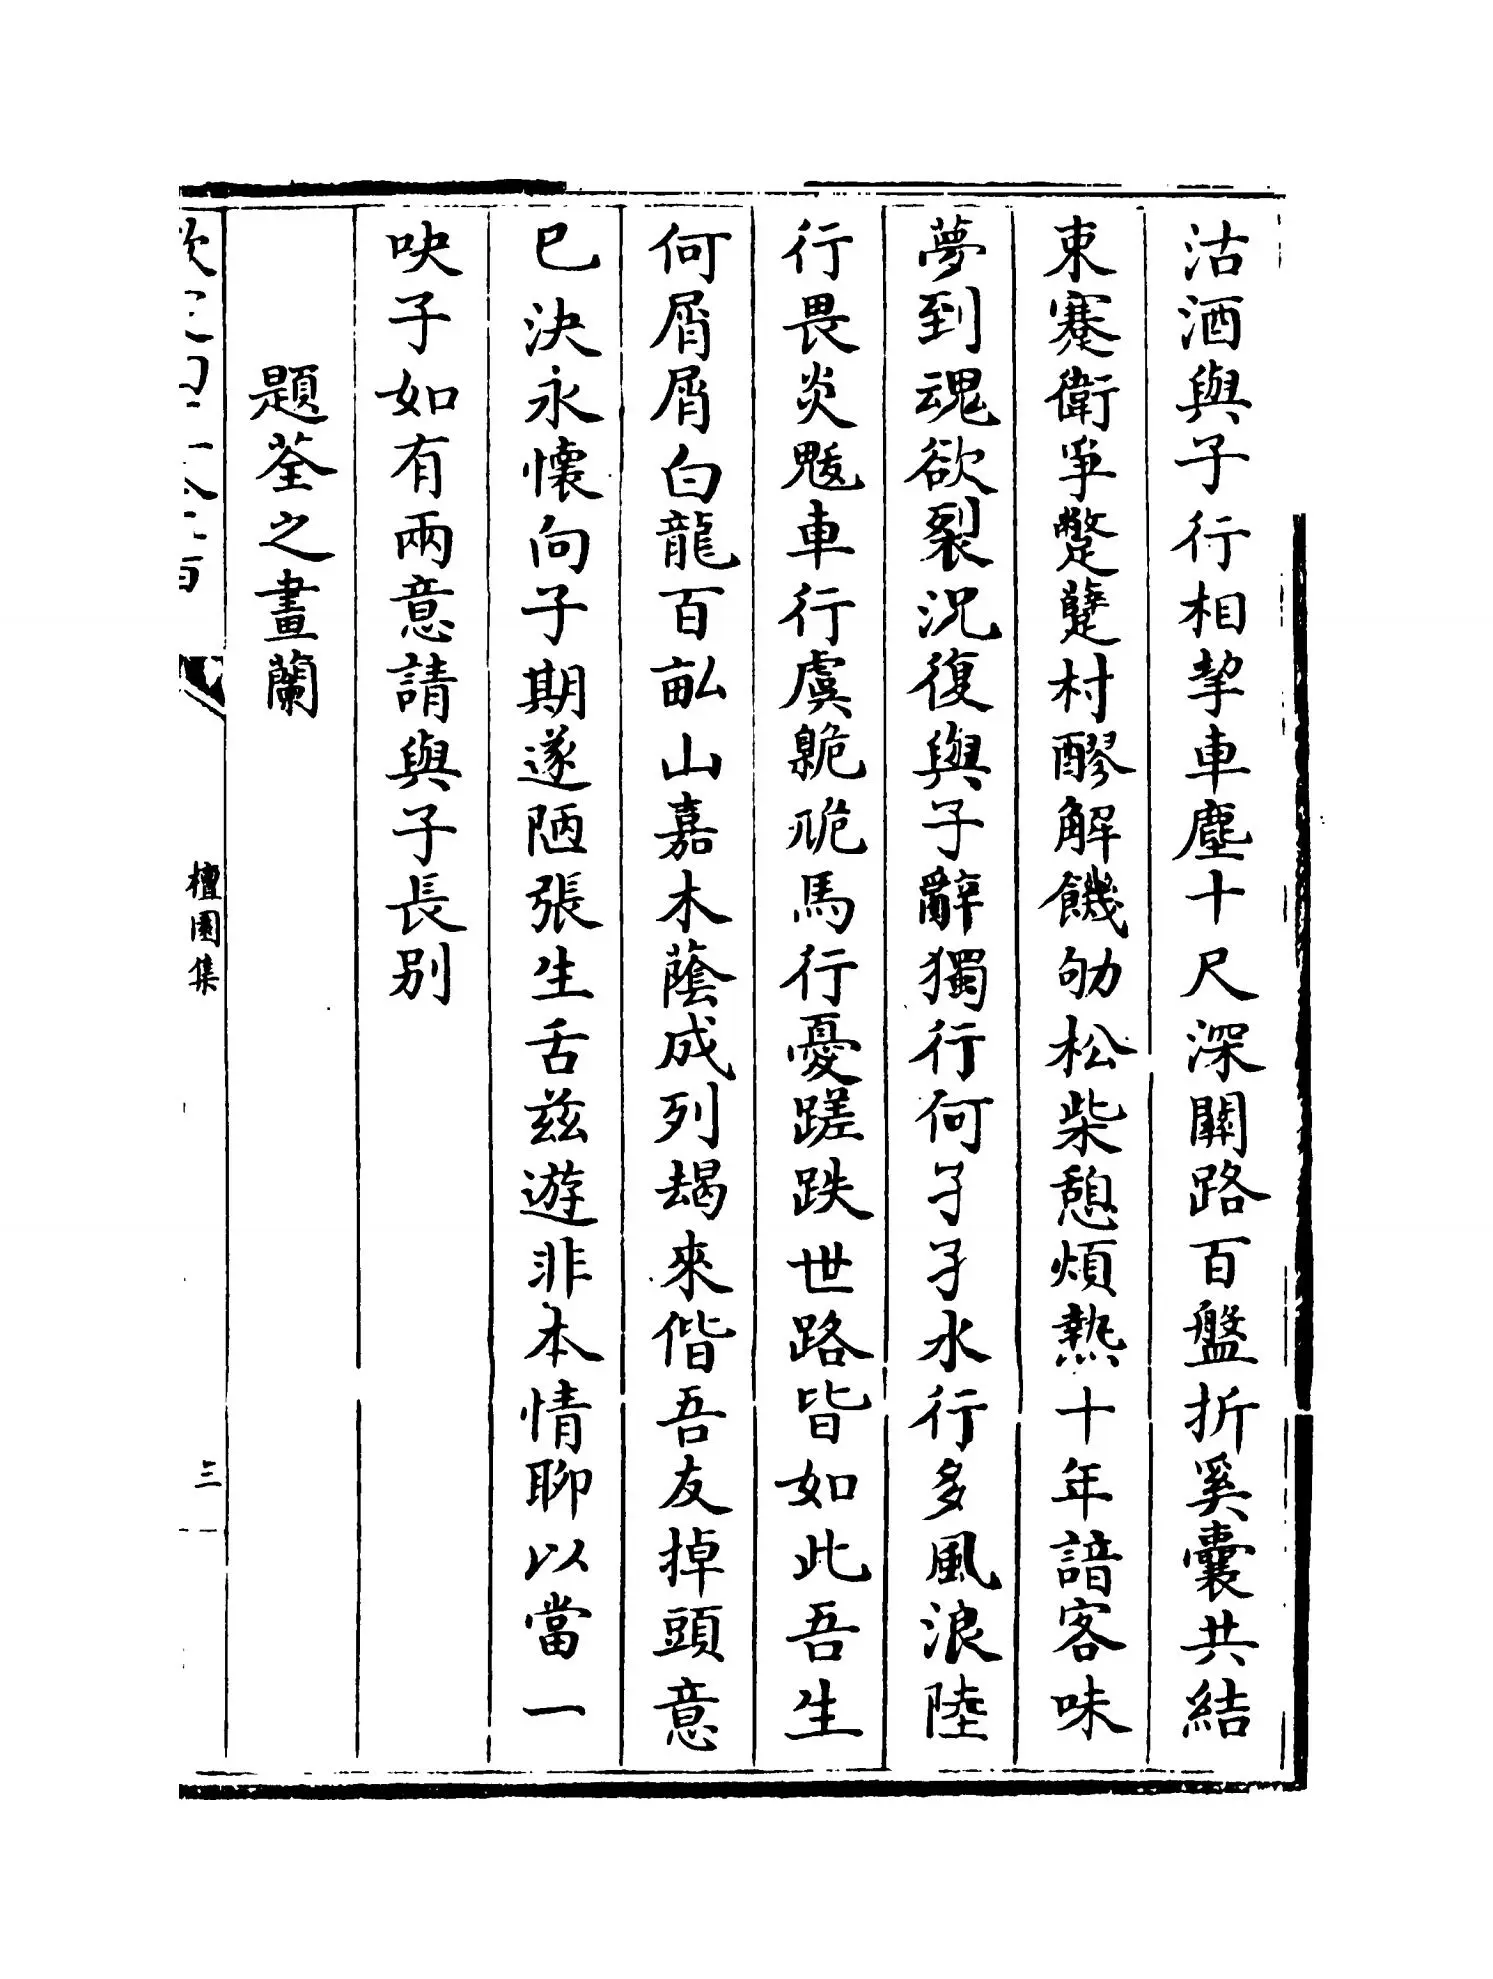 沽酒與子行相挈車塵十尺深關路百盤折奚囊共結
束蹇衛爭蹩躠村醪解饑劬松柴憩煩熱十年諳客味
夢到魂欲裂況復與子辭獨行何孑孑水行多風浪陸
行畏炎魃車行虞臲卼馬行憂蹉跌世路皆如此吾生
何屑屑白龍百畝山嘉木蔭成列朅來偕吾友掉頭意
已決永懷向子期遂陋張生舌茲遊非本情聊以當一
吷子如有兩意請與子長别
題荃之畫蘭
檀園集
三